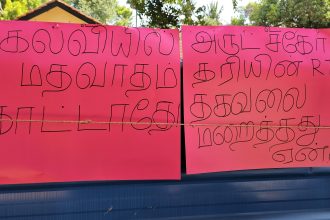 கல்வியில்
மதவாதம்
காட்டாதே
அருட் சகோ
தரியின் R
தகவலை
மறைத்தது
ஏன்